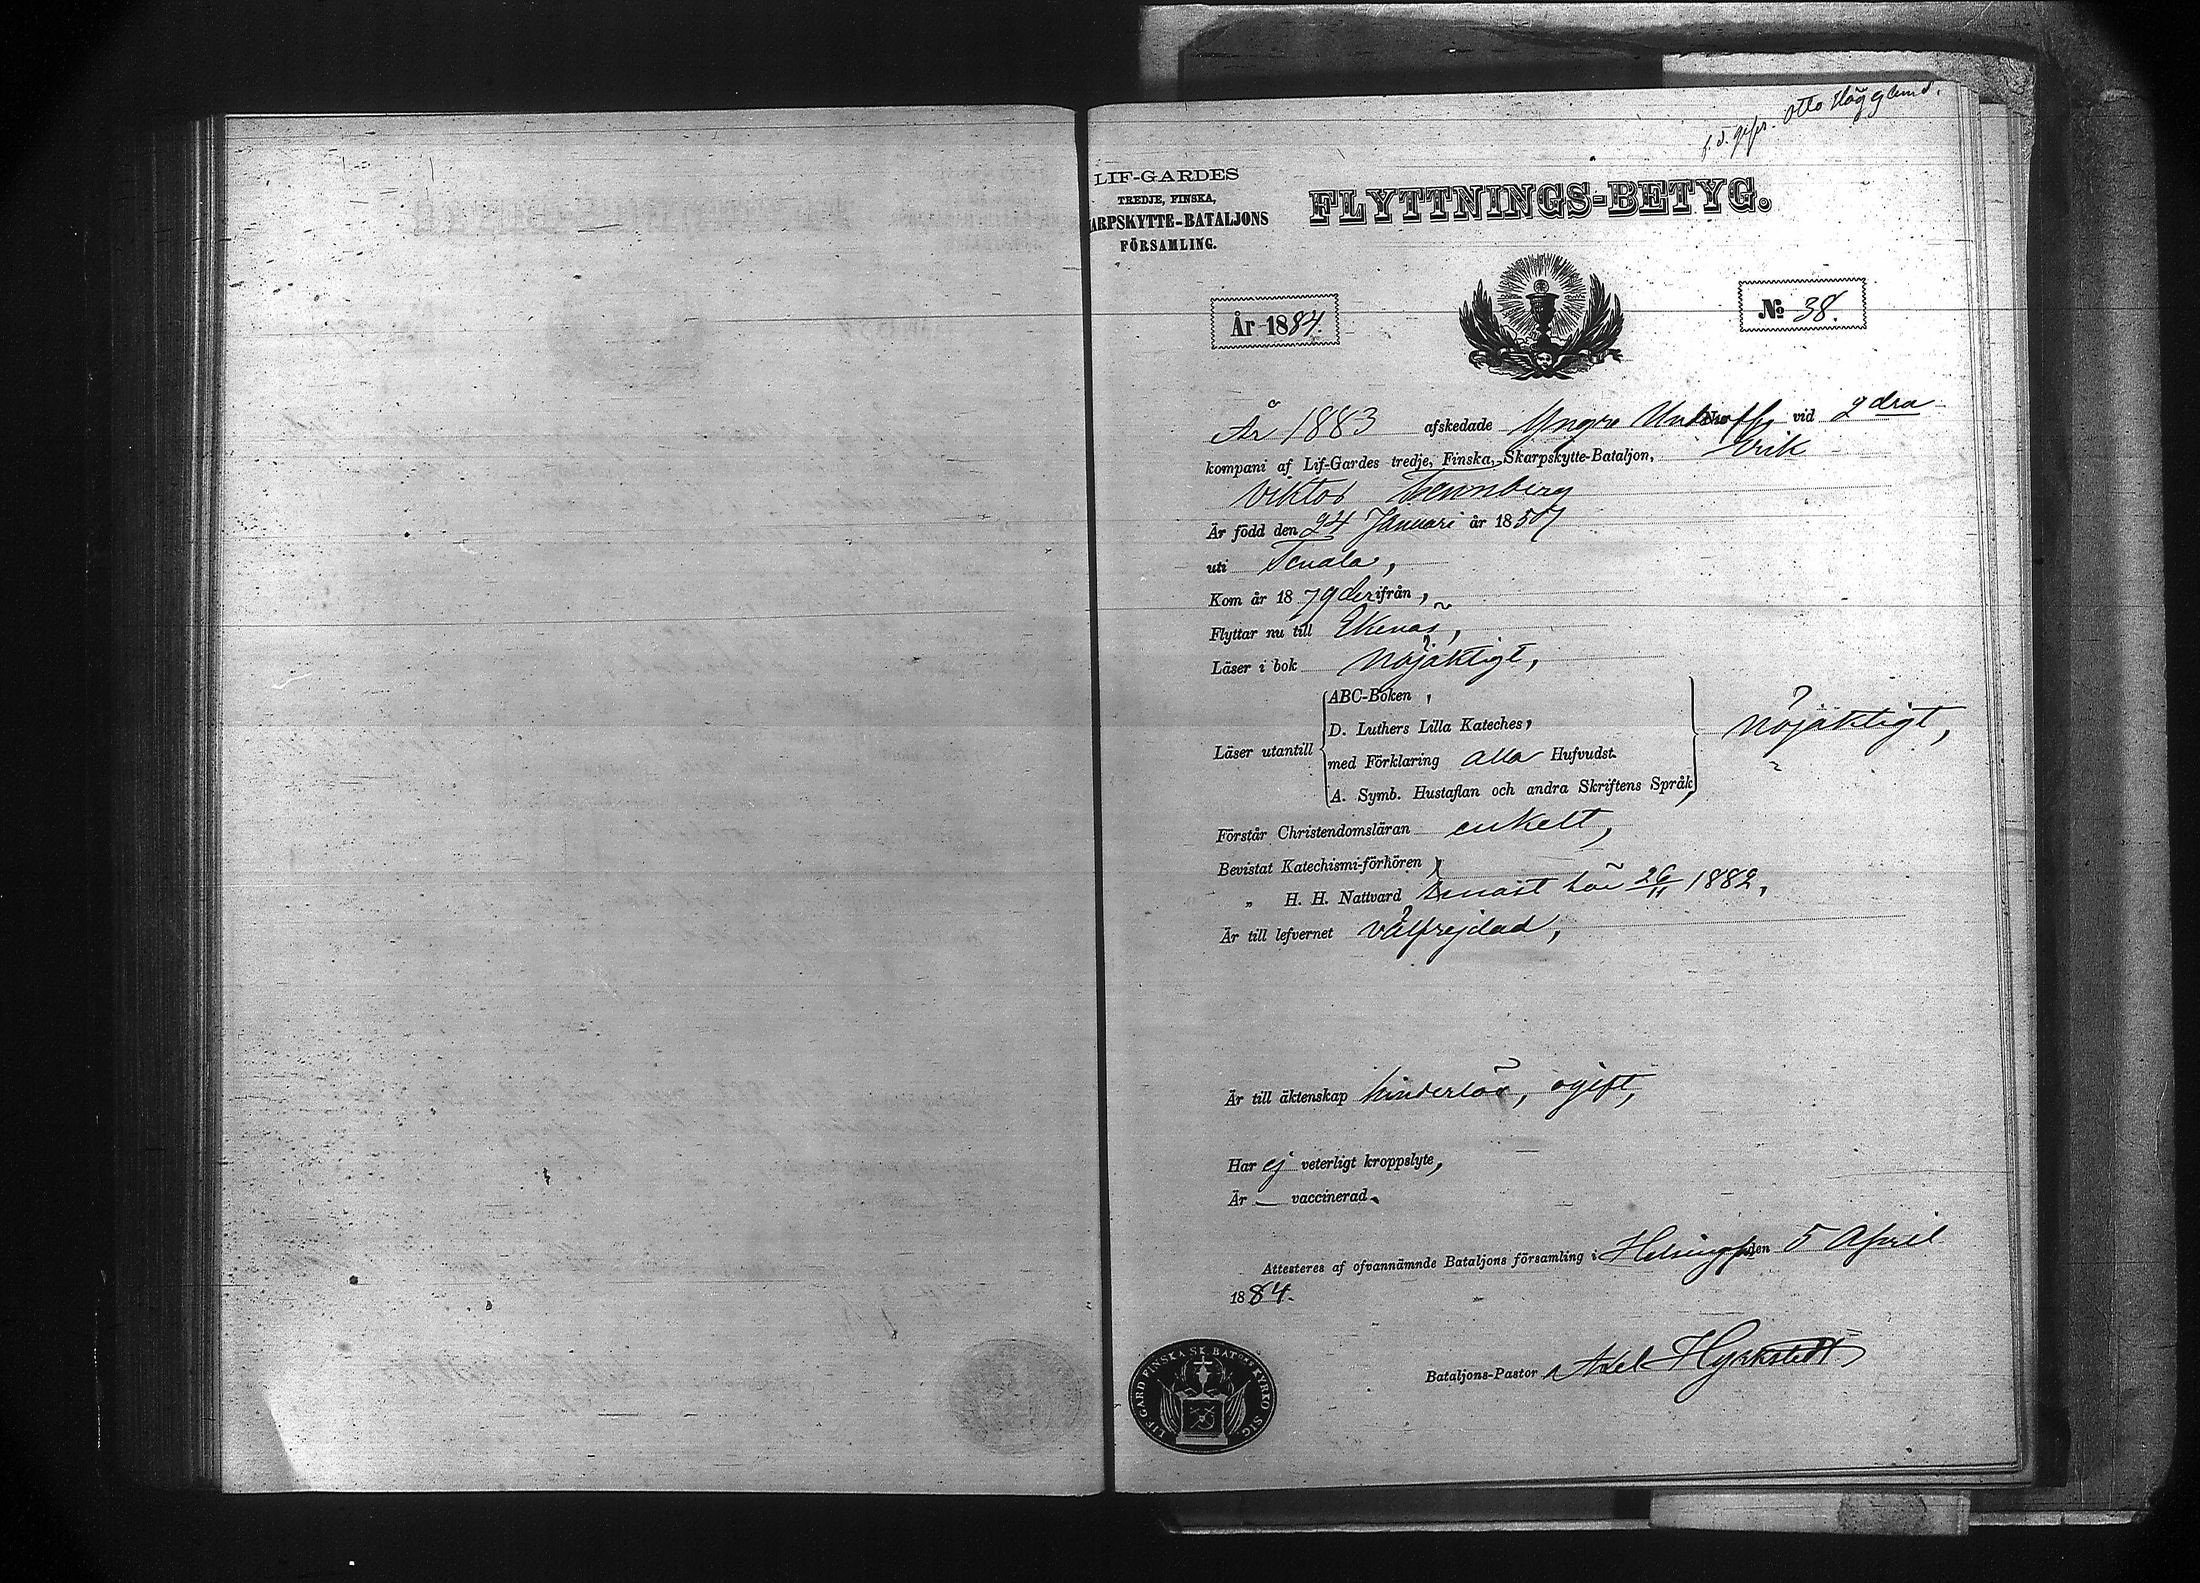 f. d. gifr. Otto Högglund.
LIF-GARDES
TREDJE, FINSKA,
ARPSKYTTE-BATALJONS
FÖRSAMLING.
FLYTTNINGS-BETYG.
År 1884.
No 38.
År 1883 afskedade Yngre Underoff. vid 2dra
kompani af Lif-Gardes tredje, Finska, Skarpskytte-Bataljon, Erik
Viktor Tennberg
Är född den 24 Januari år 1857
uti Tenala,
Kom år 1879 derifrån,
Flyttar nu till Ekenäs,
Läser i bok nöjaktigt,
Läser utantill
ABC-Boken,
D. Luthers Lilla Kateches,
med Förklaring alla Hufvudst.
A. Symb. Hustaflan och andra Skriftens Språk,
nöjaktigt,
Förstår Christendomsläran enkelt,
Bevistat Katechismi-förhören
„ H. H. Nattvard senast här 26/11 1882,
Är till lefvernet välfrejdad,
Är till äktenskap hinderlös, ogift,
Har ej veterligt kroppslyte,
Är — vaccinerad.
Attesteres af ofvannämnde Bataljons församling i Helsingf. den 5 April
1884.
Bataljons-Pastor Axel Hyrkstedt
LIF. GARD FINSKA SK. BATONS KYRKO SIG.